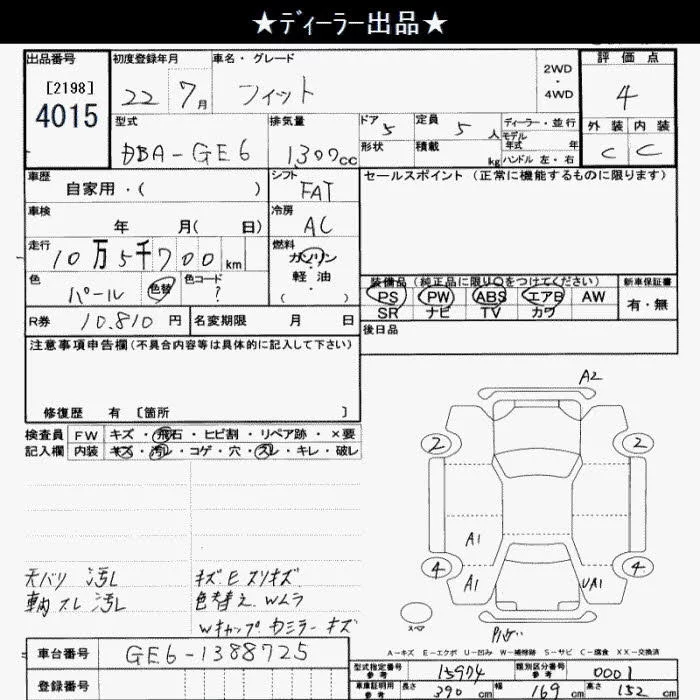 ★ディーラー出品★
出品番号
[2198]
4015
初度登録年月
22 7月
車名・グレード
フィット
2WD
・
4WD
評価点
4
外装 内装
C C
型式
DBA-GE6
排気量
1,300cc
ドア 5
形状
定員 5人
積載 kg
ディーラー・並行
モデル年式 年
ハンドル 左・右
車歴
自家用・( )
シフト
FAT
セールスポイント(正常に機能するものに限ります)
車検
年 月( 日)
冷房
AC
走行
10万5千700km
燃料
ガソリン
・
軽油
・
( )
色
パール 色替
色コード
?
装備品(純正品に限り○をつけてください)
PS PW ABS エアB AW
SR ナビ TV カワ
新車保証書
有・無
R券 10,810円
名変期限 月 日
後日品
注意事項申告欄(不具合内容等は具体的に記入して下さい)
修復歴 有 [箇所 ]
検査員
記入欄
FW キズ・飛石・ヒビ割・リペア跡・×要
内装 キズ・汚レ・コゲ・穴・スレ・キレ・破レ
天バリ 汚レ
車内 スレ 汚レ
キズ.E スリキズ.
色替え.Wムラ
Wキャップ.カミラーキズ
A2
2 2
A1
4 4
A1 UA1
スペ
A-キズ E-エクボ U-凹み W-補修跡 S-サビ C-腐食 XX-交換済
車台番号 GE6-1388725
登録番号
型式指定番号
参考
15974
類別区分番号
参考
0001
車庫証明用
参考
長さ 390cm 幅 169cm 高さ 152cm